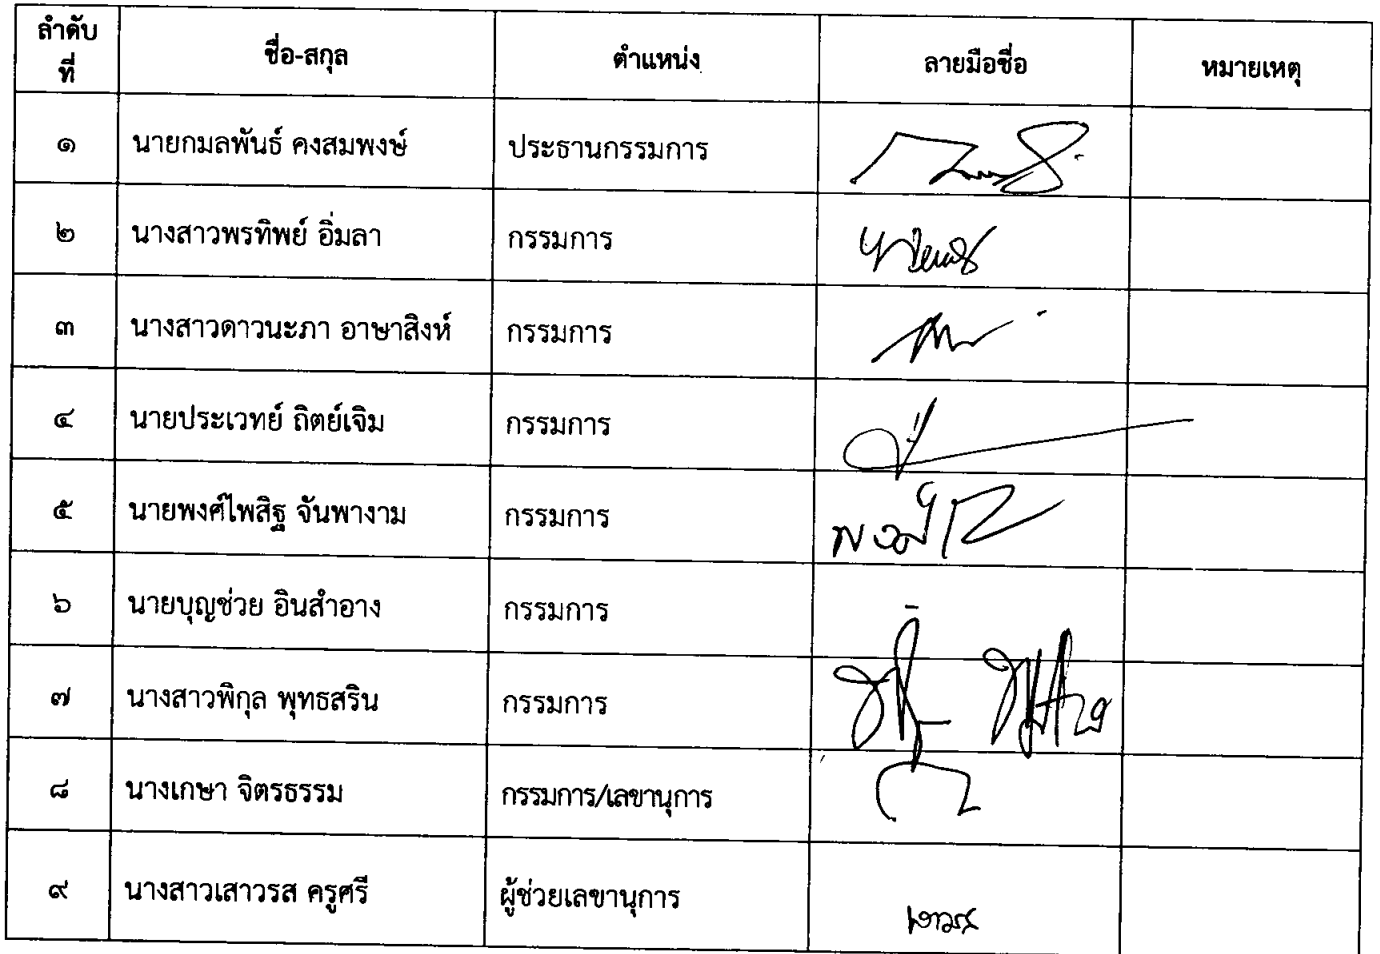 ลำดับ
ที่
ชื่อ-สกุล ตำแหน่ง ลายมือชื่อ หมายเหตุ
๑ นายกมลพันธ์ คงสมพงษ์ ประธานกรรมการ
๒ นางสาวพรทิพย์ อิ่มลา กรรมการ
๓ นางสาวดาวนะภา อาษาสิงห์ กรรมการ
๔ นายประเวทย์ ถิตย์เจิม กรรมการ
๕ นายพงศ์ไพสิฐ จันพางาม กรรมการ
๖ นายบุญช่วย อินสำอาง กรรมการ
๗ นางสาวพิกุล พุทธสริน กรรมการ
๘ นางเกษา จิตรธรรม กรรมการ/เลขานุการ
๙ นางสาวเสาวรส ครูศรี ผู้ช่วยเลขานุการ